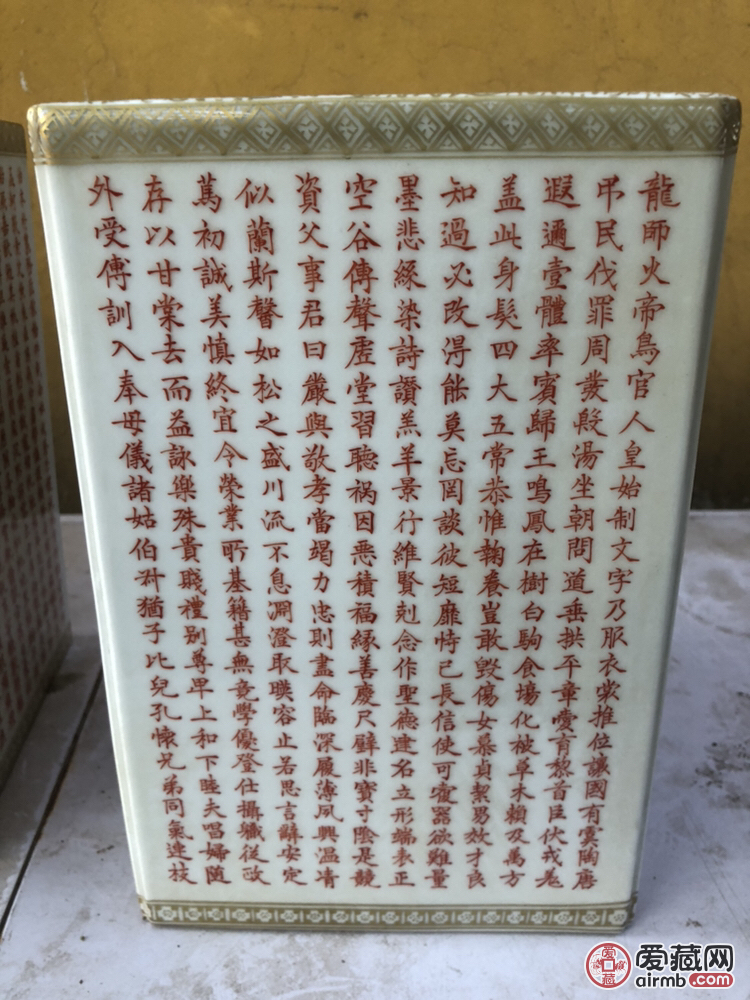 龍師火帝鳥官人皇始制文字乃服衣裳推位讓國有虞陶唐
弔民伐罪周發殷湯坐朝問道垂拱平章愛育黎首臣伏戎羌
遐邇壹體率賓歸王鳴鳳在樹白駒食場化被草木賴及萬方
盖此身髮四大五常恭惟鞠養豈敢毀傷女慕貞絜男效才良
知過必改得能莫忘罔談彼短靡恃己長信使可覆器欲難量
墨悲絲染詩讚羔羊景行維賢剋念作聖德建名立形端表正
空谷傳聲虛堂習聽禍因惡積福緣善慶尺璧非寶寸陰是競
資父事君曰嚴與敬孝當竭力忠則盡命臨深履薄夙興溫凊
似蘭斯馨如松之盛川流不息淵澄取暎容止若思言辭安定
篤初誠美慎終宜令榮業所基籍甚無竟學優登仕攝職從政
存以甘棠去而益詠樂殊貴賤禮別尊卑上和下睦夫唱婦隨
外受傅訓入奉母儀諸姑伯叔猶子比兒孔懷兄弟同氣連枝
爱藏网
airmb.com